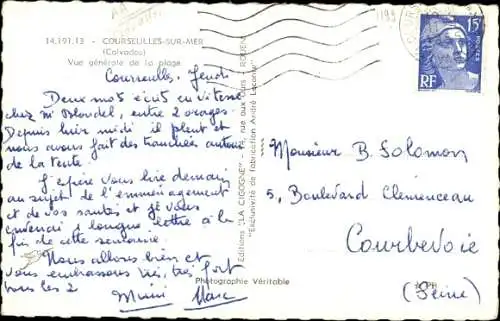 14.191.13 - COURSEULLES-SUR-MER
(Calvados)
Vue générale de la plage
Courseulles, Jeudi
Deux mots écrits en vitesse
chez M Blondel, entre 2 orages.
Depuis hier midi il pleut et
nous avons fait des tranchées autour
de la tente.
J'espère vous lire demain
au sujet de l'emménagement
et de vos santés et je vous
enverrai 1 longue lettre à la
fin de cette semaine.
Nous allons bien et
vous embrassons très, très fort
tous les 2
Mimi Marc
Editions "LA CIGOGNE" - rue aux Ours - ROUEN
"Exclusivité de fabrication André Leconte"
Photographie Véritable
15F
POSTES
RF
Monsieur B. Solomon
5, Boulevard Clemenceau
Courbevoie
(Seine)